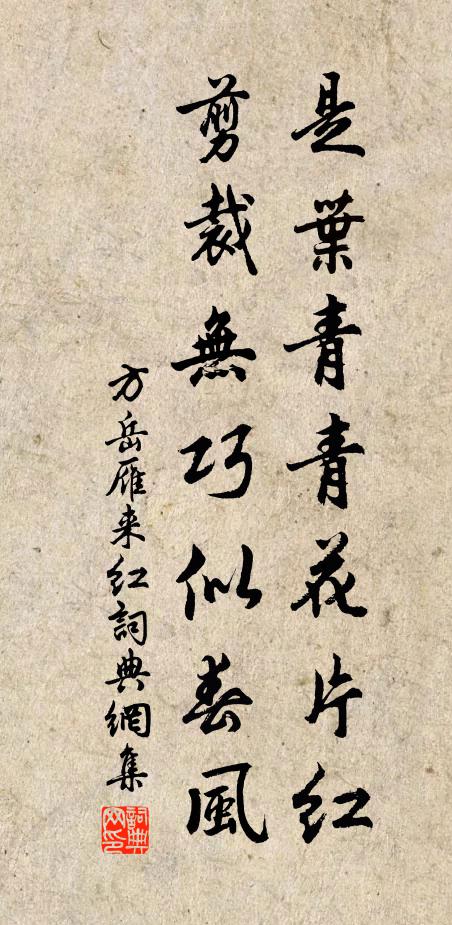 是葉青青花片紅
剪裁無巧似春風
方岳雁来红詞典網集
詞典网印